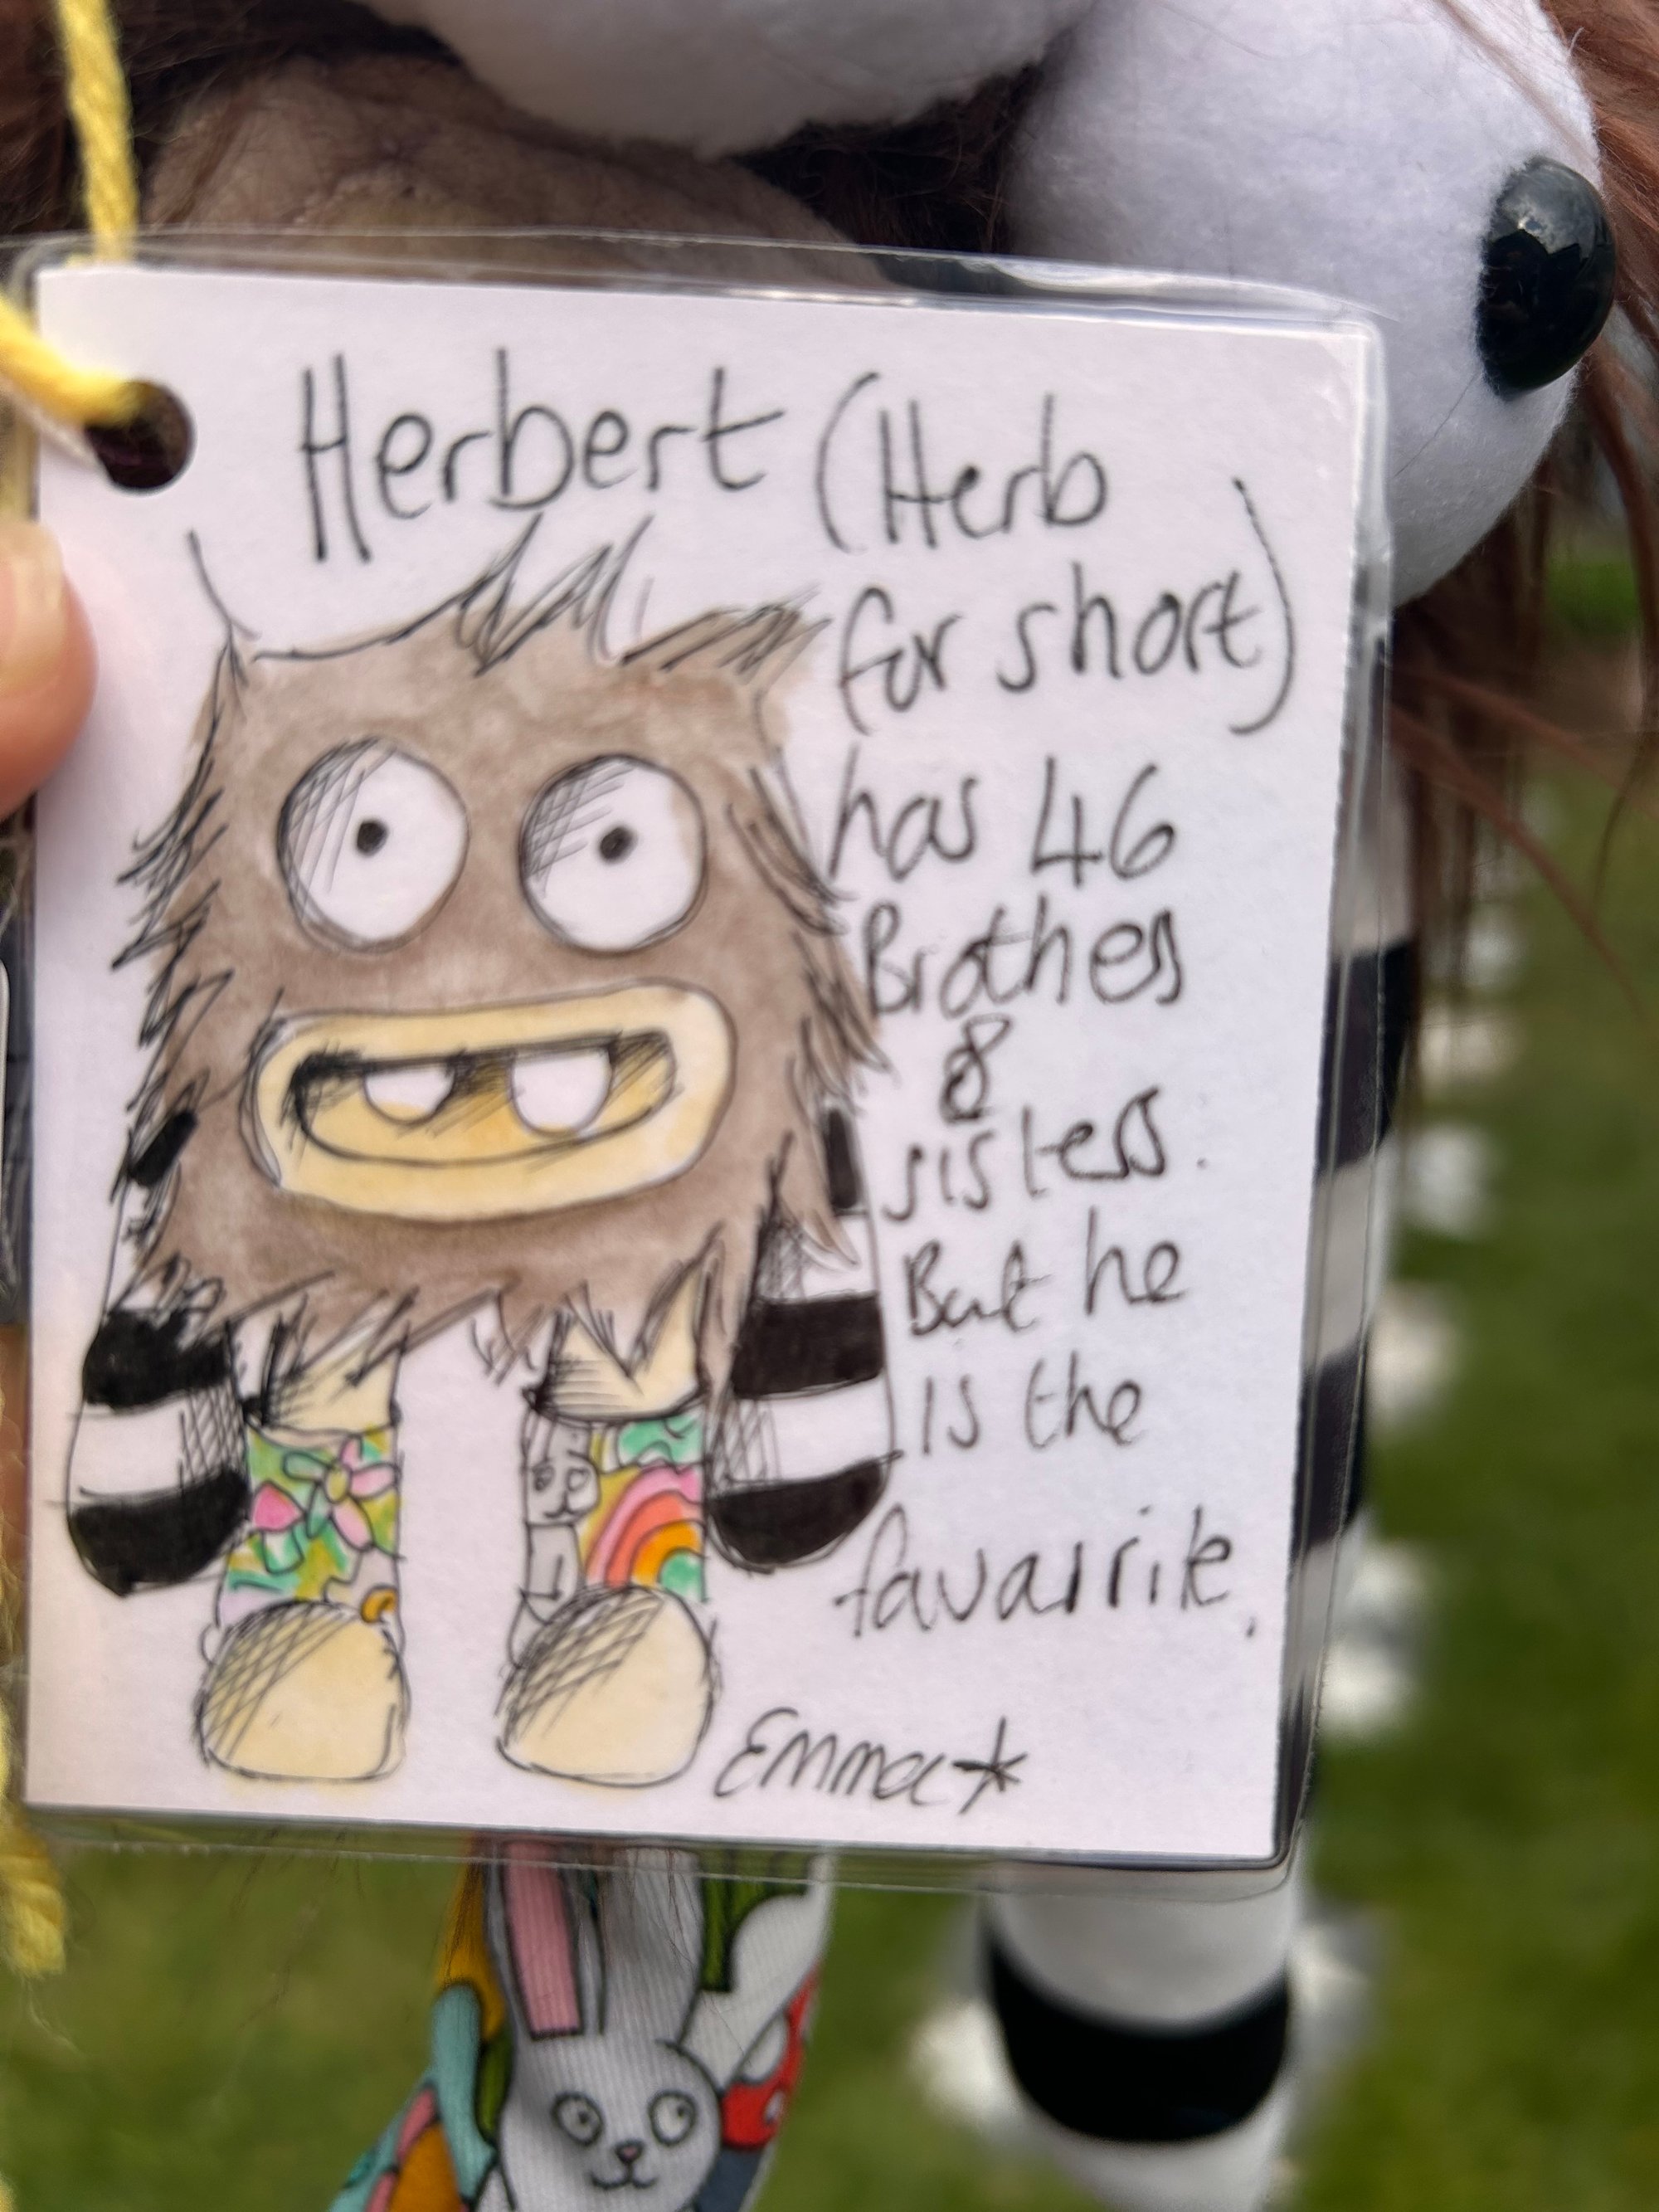 Herbert (Herb
for short)
has 46
Brothers
8
sisters.
But he
is the
favarrite.
Emma*